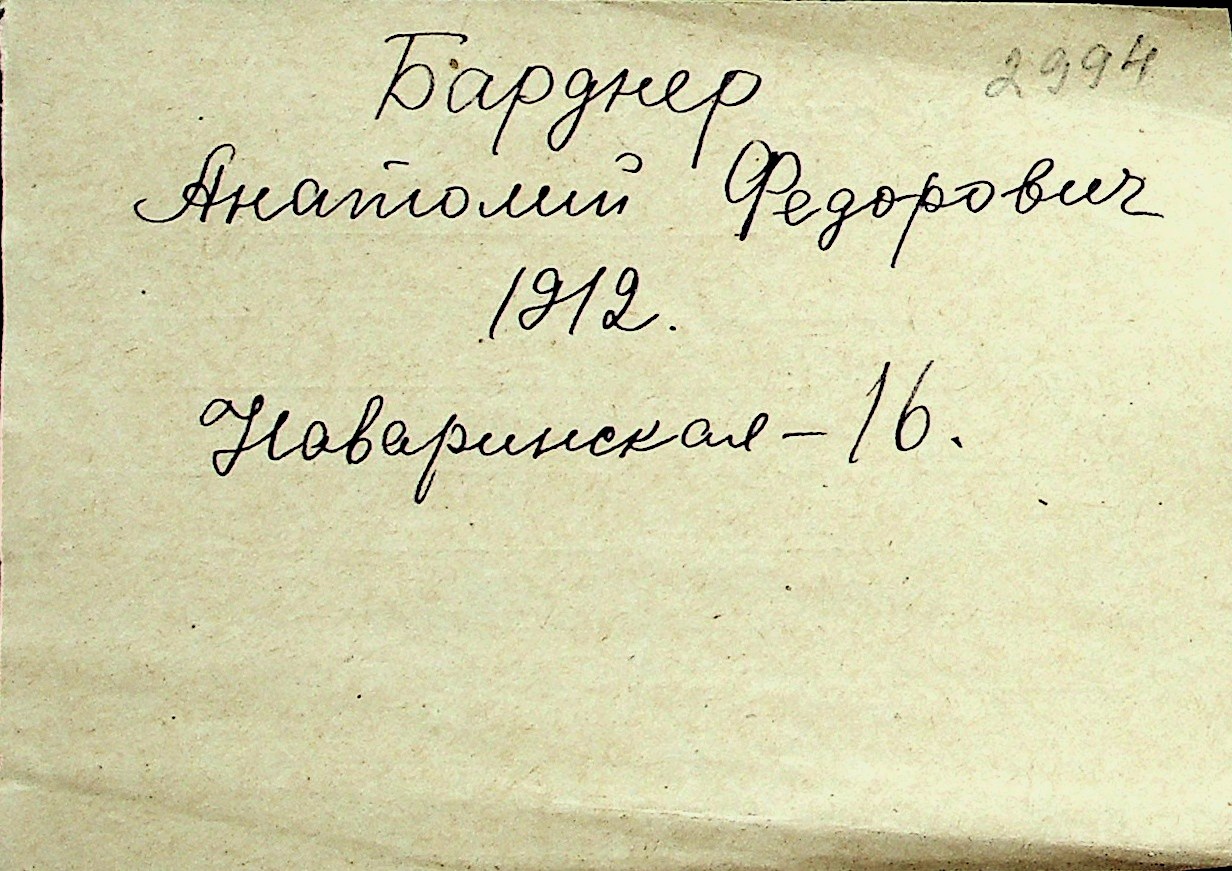 2994
Барднер
Анатолий Федорович
1912.
Наваринская – 16.